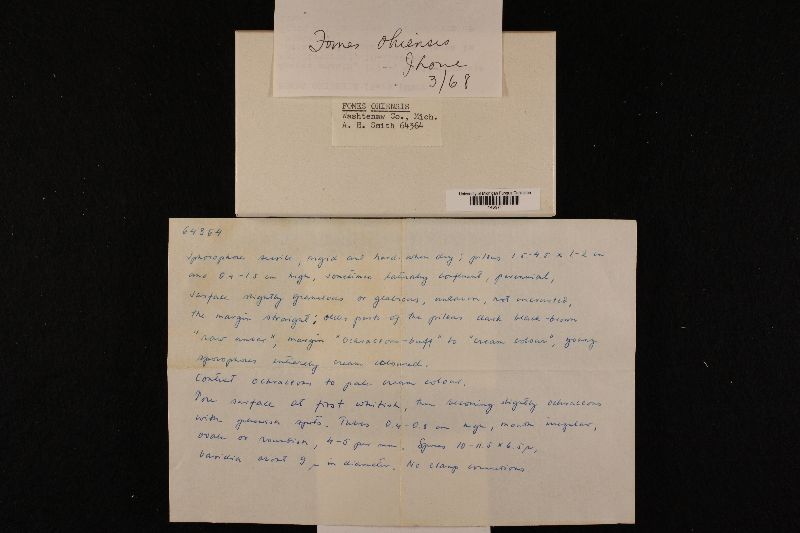 Fomes ohiensis
3/68
FOMES OHIENSIS
Washtenaw Co., Mich.
A. H. Smith 64364
University of Michigan Fungus Collection
64364
Sporophores sessile, rigid and hard when dry; pileus 1.5-4.5 x 1-2 cm
and 0.4-1.5 cm high, sometimes laterally confluent, perennial,
surface slightly granulous or glabrous, uneven, not encrusted,
the margin straight; older parts of the pileus dark black-brown
"raw umber", margin "ochraceous-buff" to "cream colour", young
sporophores entirely cream coloured.
Context ochraceous to pale cream colour.
Pore surface at first whitish, then becoming slightly ochraceous
with spots. Tubes 0.4-0.8 cm high, mouths irregular,
ovate or roundish, 4-5 per mm. Spores 10-11.5 x 6.5 µ,
basidia about 9 µ in diameter. No clamp connections